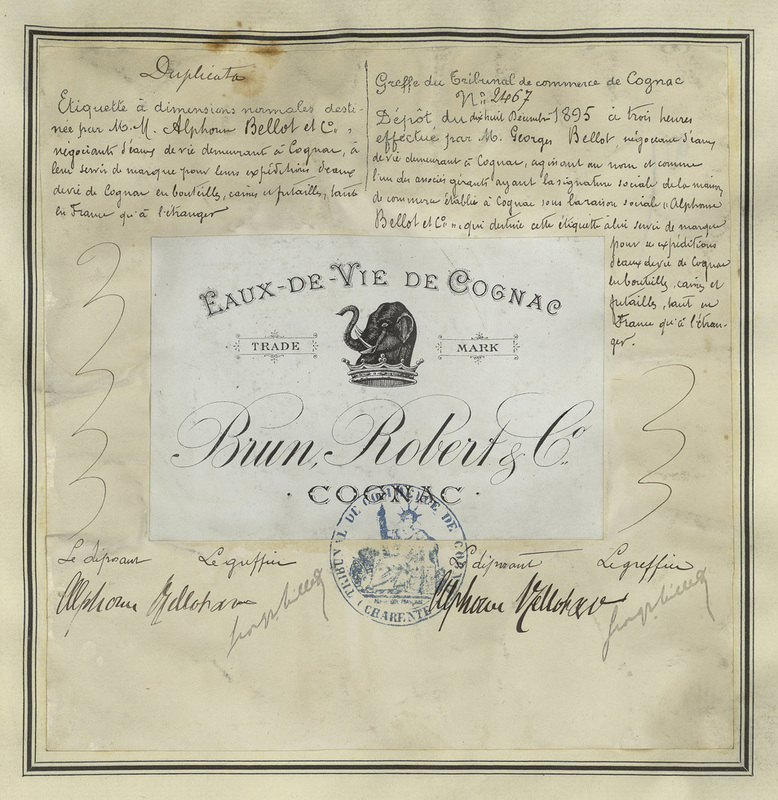 Duplicata
Etiquette à dimensions normales desti-
née par M.M. Alphonse Bellot et Cº,
négociants d'eaux de vie demeurant à Cognac, à
leur servir de marque pour leurs expéditions d'eaux
de vie de Cognac en bouteilles, caisses et futailles, tant
en France qu'à l'étranger
Greffe du Tribunal de commerce de Cognac
Nº 2467
Dépôt du dix huit Décembre 1895 à trois heures
effectué par M. Georges Bellot, négociant d'eaux
de vie demeurant à Cognac, agissant au nom et comme
l'un des associés gérants ayant la signature sociale de la maison
de commerce établie à Cognac sous la raison sociale "Alphonse
Bellot et Cº", qui destine cette étiquette à lui servir de marque
pour ses expéditions
d'eaux de vie de Cognac
en bouteilles, caisses et
futailles, tant en
France qu'à l'étran-
ger.
EAUX-DE-VIE DE COGNAC
TRADE MARK
Brun, Robert & Cº.
· COGNAC ·
TRIBUNAL DE COMMERCE DE COGNAC
(CHARENTE)
Le déposant Le greffier Le déposant Le greffier
Alphonse Alphonse